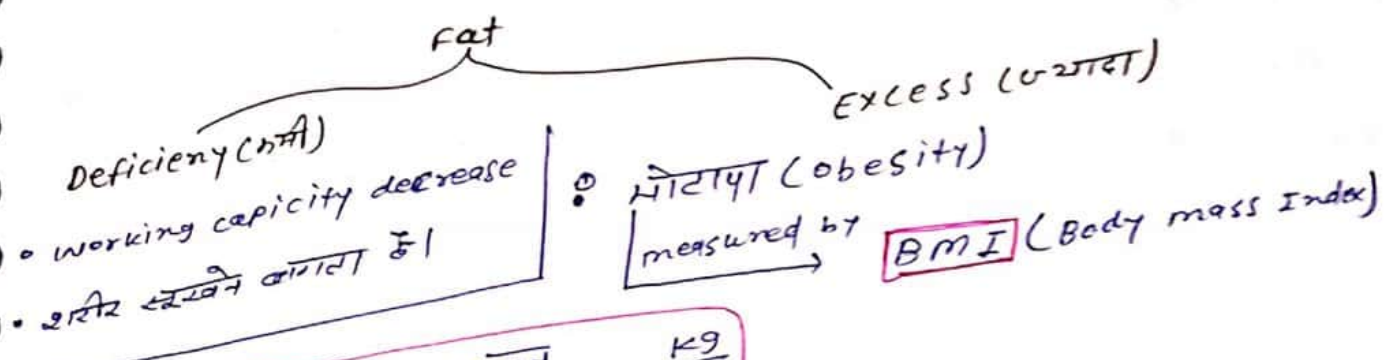 Fat
Deficieny (कमी)
Excess (ज्यादा)
• working capicity decrease
• शरीर सूखने लगता है।
मोटापा (obesity)
measured by BMI (Body mass Index)
Kg